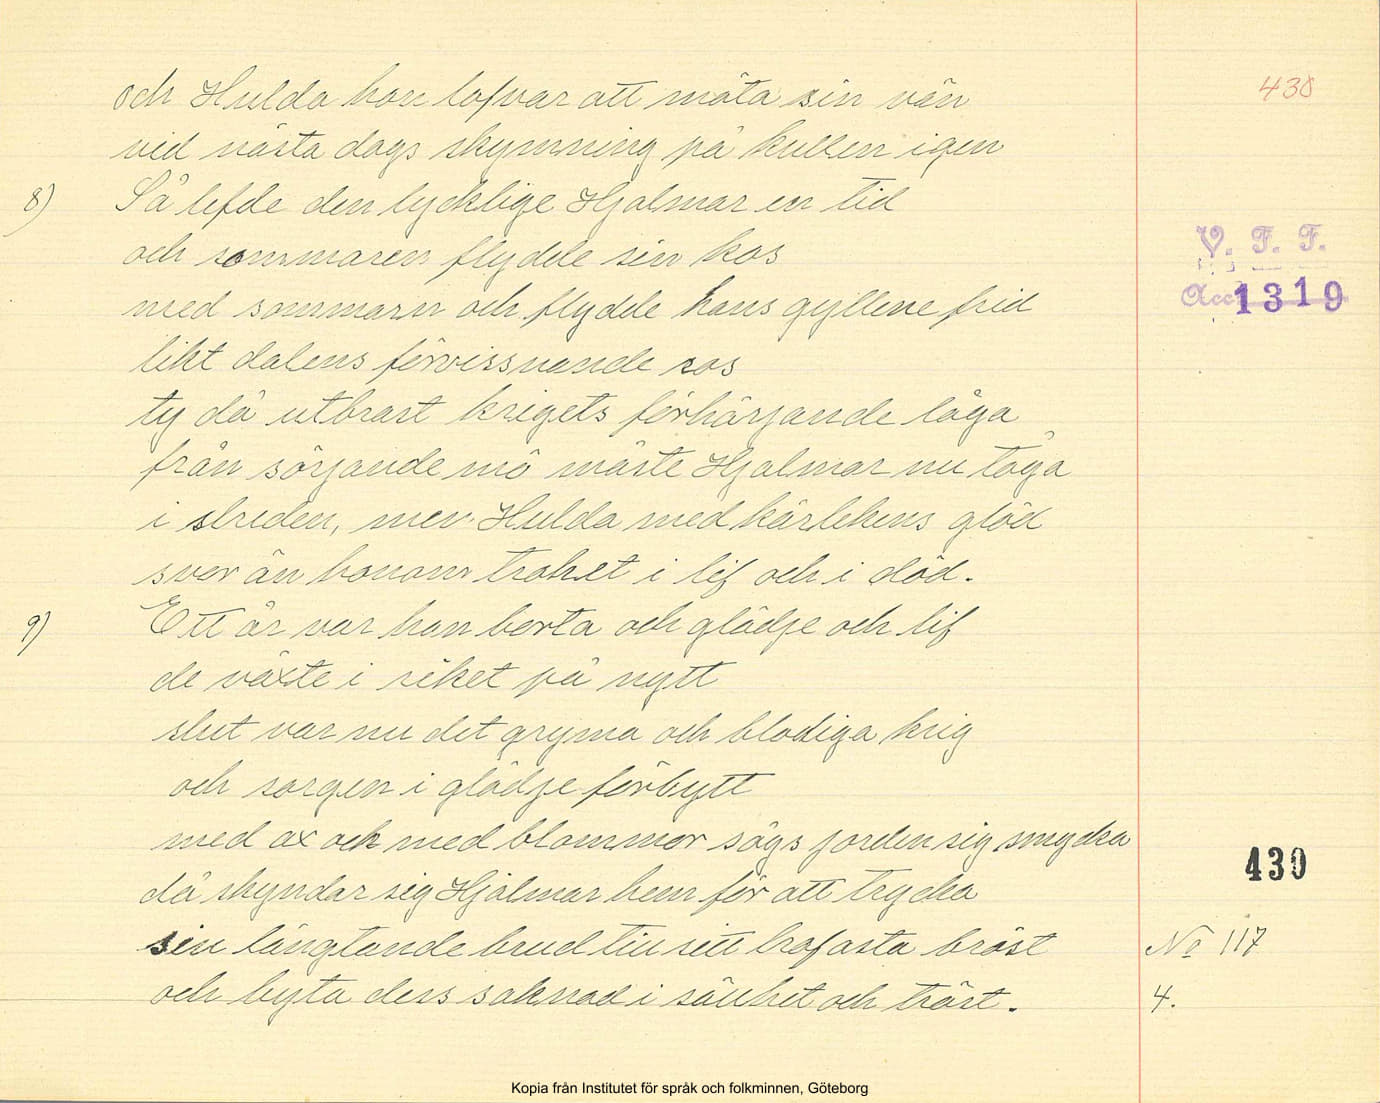 och Hulda hon lofvar att möta sin vän
430
vid nästa dags skymning på kullen igen
8) Så lefde den lycklige Hjalmar en tid
och sommaren flydde sin kos
V. F. F.
med sommarn och flydde hans gyllene frid
Acc 1319
likt dalens förvissnande ros
ty då utbrast krigets förhärjande låga
från sörjande mö måste Hjalmar nu tåga
i striden, men Hulda med kärlekens glöd
svor än honom trohet i lif och i död.
9) Ett år var han borta och glädje och lif
de växte i riket på nytt
slut var nu det gryma och blodiga krig
och sorgen i glädje förbytt
med ax och med blommor sågs jorden sig smycka
430
då skyndar sig Hjalmar hem för att trycka
sin längtande brud till sitt trofasta bröst
No 117
och byta dess saknad i sällhet och tröst.
4.
Kopia från Institutet för språk och folkminnen, Göteborg